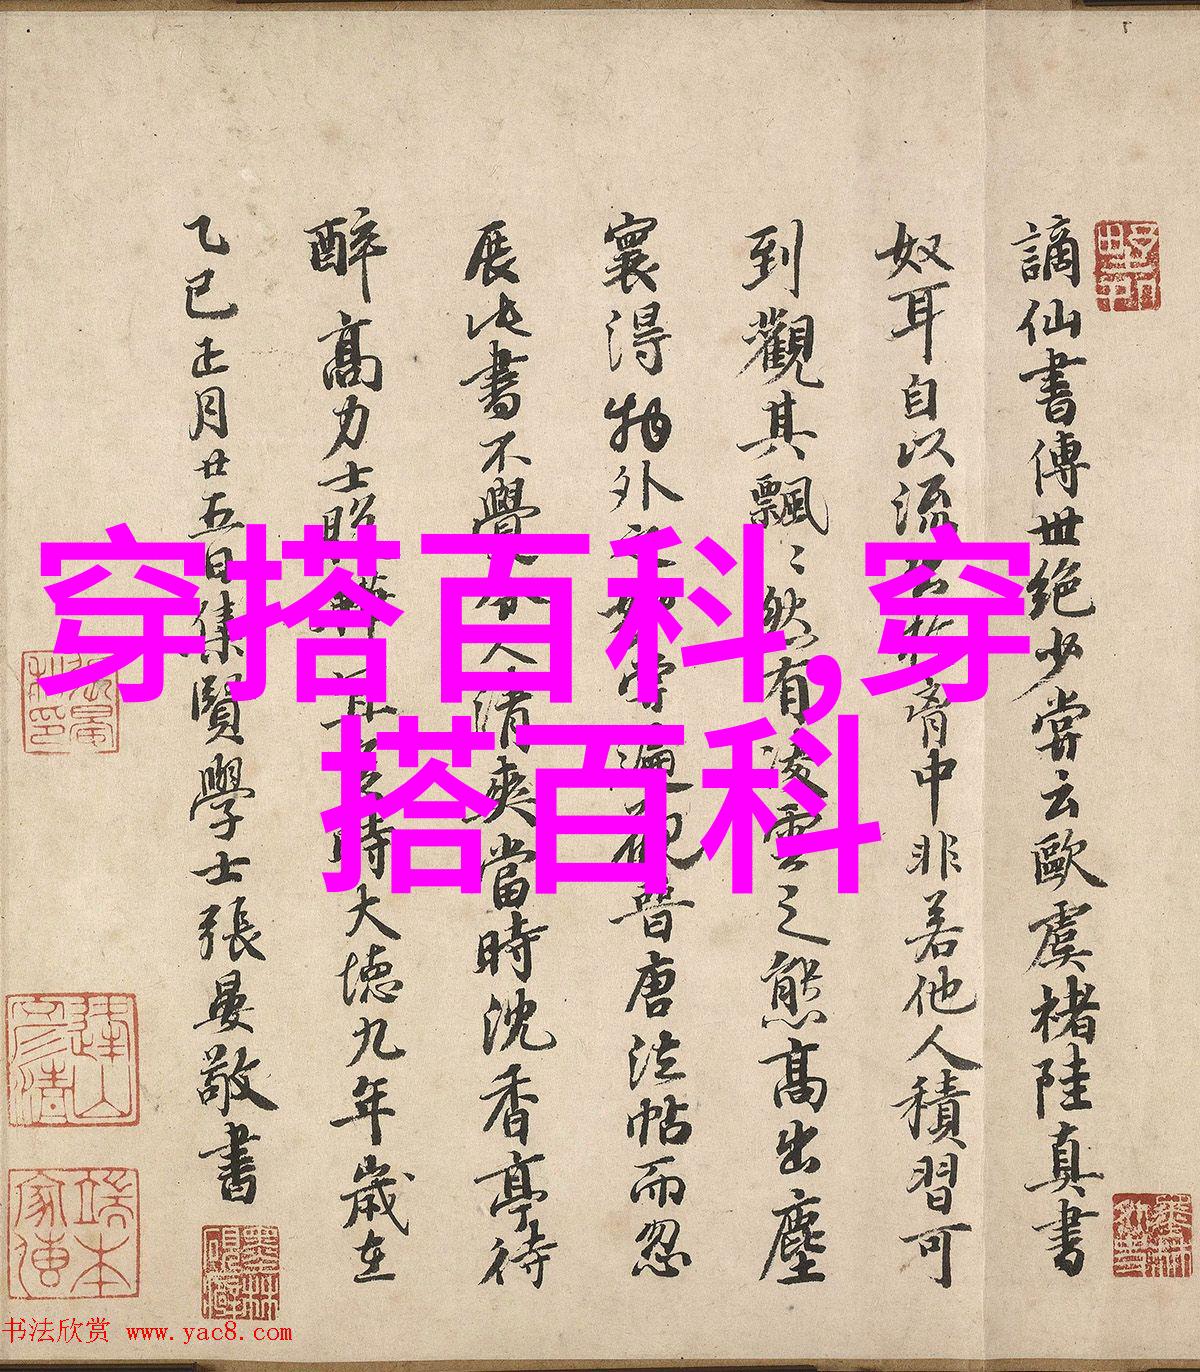 謫仙書傳世絕少嘗云歐虞褚陸真書
奴耳自以流出於胷中非若他人積習可
到觀其飄〻然有凌雲之態高出塵
寰得物外之妙嘗遍觀晉唐法帖而忽
展此書不覺令人清爽當時沈香亭待
醉高力士脫鞾耳時大德九年歲在
乙巳正月廿五日集賢學士張晏敬書
穿搭百科,穿
搭百科
书法欣赏 www.yac8.com